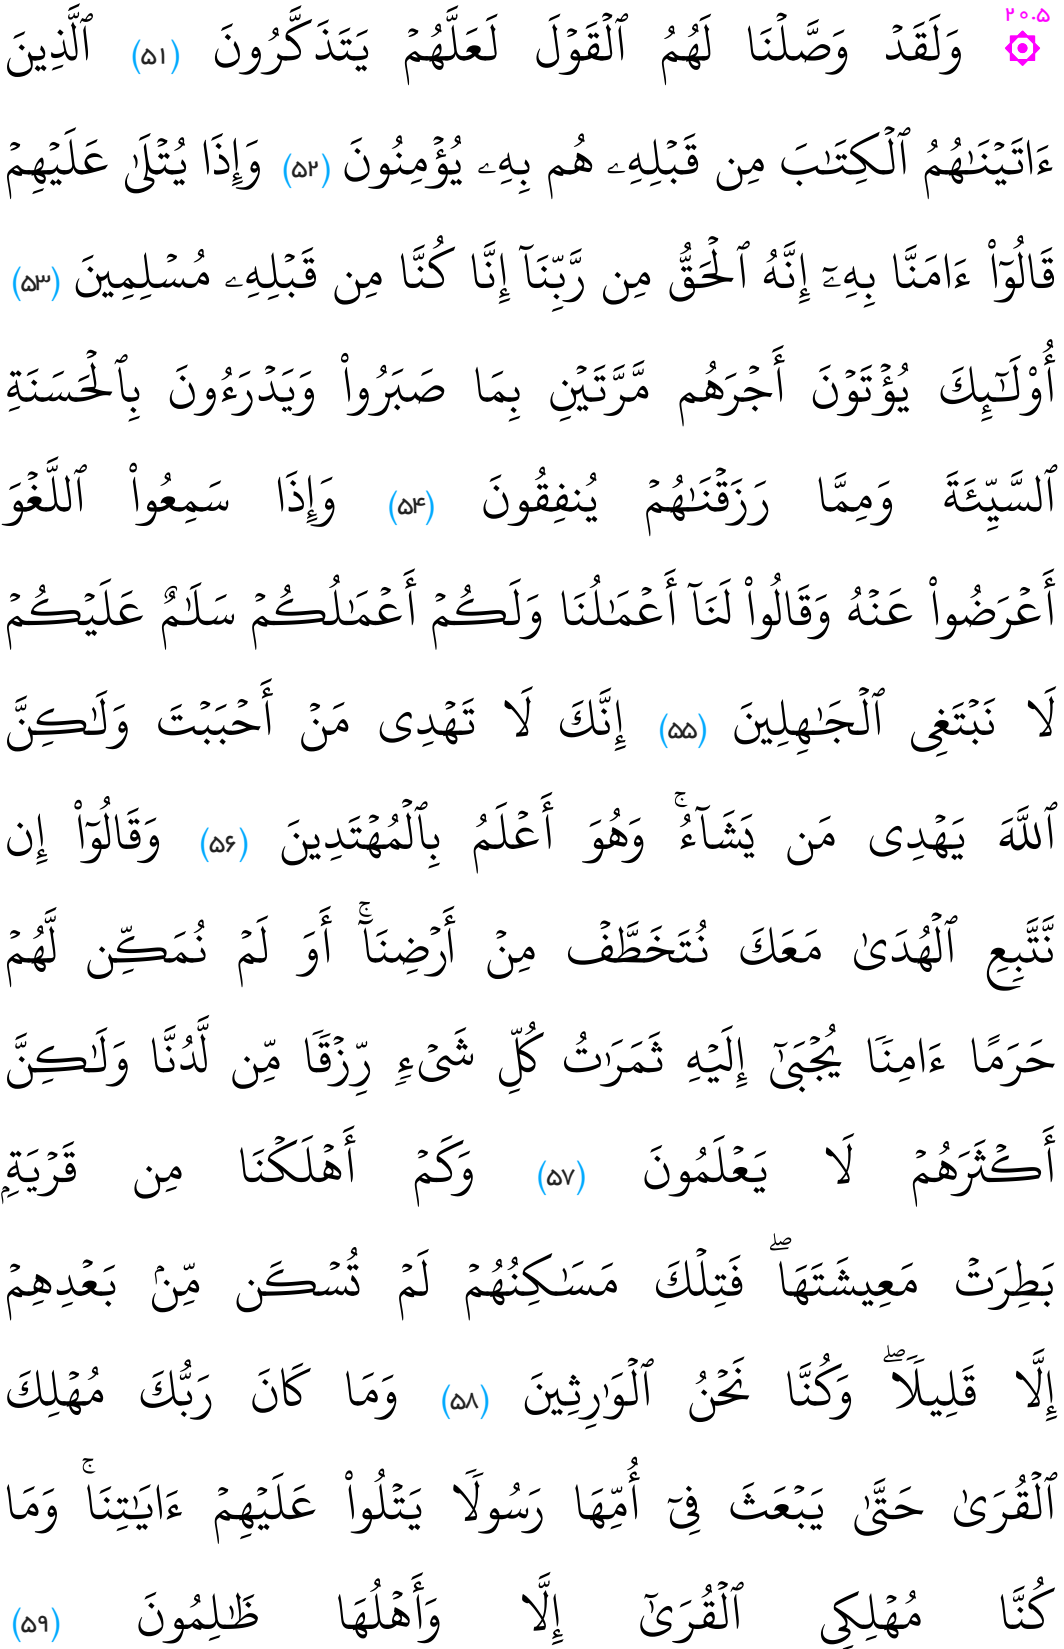 ۲۰.۵
۞ وَلَقَدۡ وَصَّلۡنَا لَهُمُ ٱلۡقَوۡلَ لَعَلَّهُمۡ يَتَذَكَّرُونَ (۵۱) ٱلَّذِينَ
ءَاتَيۡنَٰهُمُ ٱلۡكِتَٰبَ مِن قَبۡلِهِۦ هُم بِهِۦ يُؤۡمِنُونَ (۵۲) وَإِذَا يُتۡلَىٰ عَلَيۡهِمۡ
قَالُوٓاْ ءَامَنَّا بِهِۦٓ إِنَّهُ ٱلۡحَقُّ مِن رَّبِّنَآ إِنَّا كُنَّا مِن قَبۡلِهِۦ مُسۡلِمِينَ (۵۳)
أُوْلَٰٓئِكَ يُؤۡتَوۡنَ أَجۡرَهُم مَّرَّتَيۡنِ بِمَا صَبَرُواْ وَيَدۡرَءُونَ بِٱلۡحَسَنَةِ
ٱلسَّيِّئَةَ وَمِمَّا رَزَقۡنَٰهُمۡ يُنفِقُونَ (۵۴) وَإِذَا سَمِعُواْ ٱللَّغۡوَ
أَعۡرَضُواْ عَنۡهُ وَقَالُواْ لَنَآ أَعۡمَٰلُنَا وَلَكُمۡ أَعۡمَٰلُكُمۡ سَلَٰمٌ عَلَيۡكُمۡ
لَا نَبۡتَغِي ٱلۡجَٰهِلِينَ (۵۵) إِنَّكَ لَا تَهۡدِي مَنۡ أَحۡبَبۡتَ وَلَٰكِنَّ
ٱللَّهَ يَهۡدِي مَن يَشَآءُۚ وَهُوَ أَعۡلَمُ بِٱلۡمُهۡتَدِينَ (۵۶) وَقَالُوٓاْ إِن
نَّتَّبِعِ ٱلۡهُدَىٰ مَعَكَ نُتَخَطَّفۡ مِنۡ أَرۡضِنَآۚ أَوَ لَمۡ نُمَكِّن لَّهُمۡ
حَرَمًا ءَامِنٗا يُجۡبَىٰٓ إِلَيۡهِ ثَمَرَٰتُ كُلِّ شَيۡءٖ رِّزۡقٗا مِّن لَّدُنَّا وَلَٰكِنَّ
أَكۡثَرَهُمۡ لَا يَعۡلَمُونَ (۵۷) وَكَمۡ أَهۡلَكۡنَا مِن قَرۡيَةِۭ
بَطِرَتۡ مَعِيشَتَهَاۖ فَتِلۡكَ مَسَٰكِنُهُمۡ لَمۡ تُسۡكَن مِّنۢ بَعۡدِهِمۡ
إِلَّا قَلِيلٗاۖ وَكُنَّا نَحۡنُ ٱلۡوَٰرِثِينَ (۵۸) وَمَا كَانَ رَبُّكَ مُهۡلِكَ
ٱلۡقُرَىٰ حَتَّىٰ يَبۡعَثَ فِيٓ أُمِّهَا رَسُولٗا يَتۡلُواْ عَلَيۡهِمۡ ءَايَٰتِنَاۚ وَمَا
كُنَّا مُهۡلِكِي ٱلۡقُرَىٰٓ إِلَّا وَأَهۡلُهَا ظَٰلِمُونَ (۵۹)